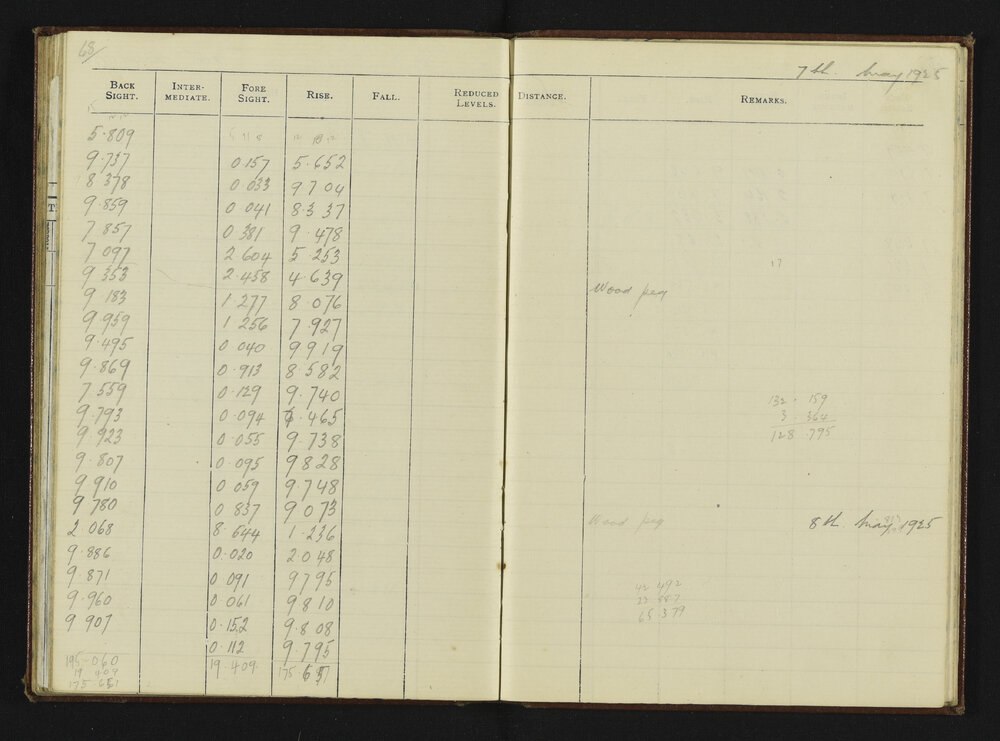 68/
7th. May 1925
BACK SIGHT. INTER-MEDIATE. FORE SIGHT. RISE. FALL. REDUCED LEVELS. DISTANCE. REMARKS.
5.809
9.737 0.157 5.652
8 378 0 033 9 704
9.859 0 041 8 3 37
7 857 0 381 9.478
7 097 2 604 5.253
9 353 2.458 4.639
9 183 1.277 8.076 Wood peg
9.959 1 256 7.927
9.495 0 040 9 919
9.869 0.913 8.582
7.559 0.129 9.740
9.793 0.094 7.465
9 923 0 055 9.738
9.807 0 095 9 828
9 910 0 059 9.748
9 780 0 837 9 073
2 068 8.644 1.236 Wood peg 8th May 1925
9.886 0.020 2 0 48
9.871 0 091 9 795
9.960 0 061 9 8 10
9 907 0.152 9.8 08
0.112 9.795
195.060 19.409 175 651
19 409
175.651
17
132.159
3.364
128.795
42 492
22 887
65.379